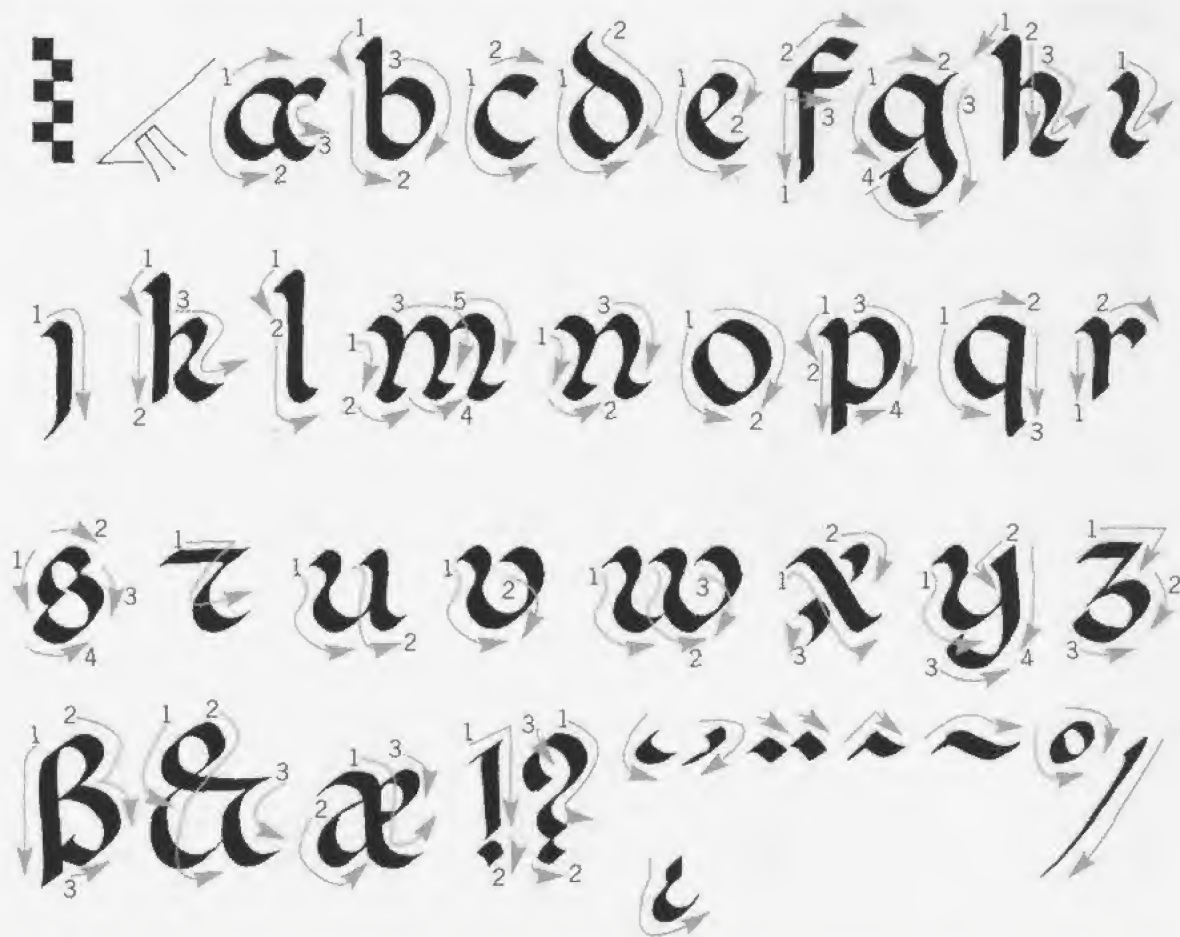 a b c d e f g h ı
ȷ k l m n o p q r
s t u v w x y z
ß & æ ! ? ¸ ˛ ¨ ˆ ˜ ° /